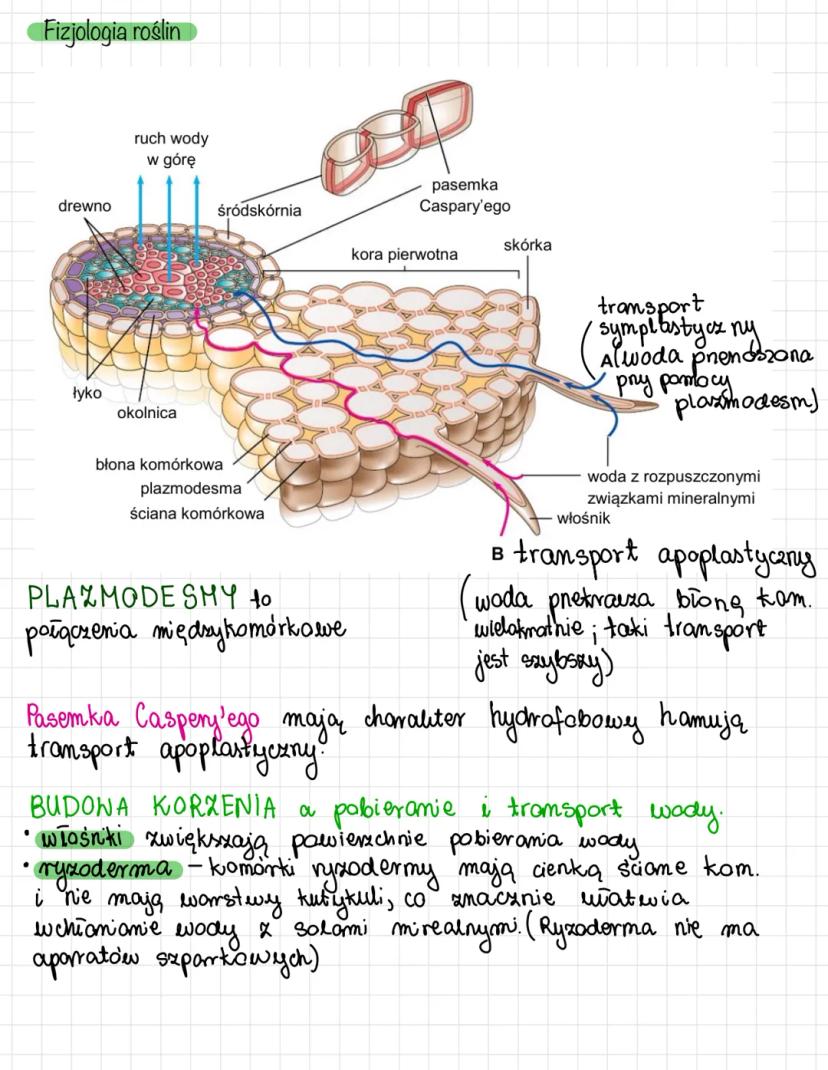 Fizjologia roślin
ruch wody
w górę
drewno
śródskórnia
pasemka
Caspary'ego
kora pierwotna
skórka
transport
symplastyczny
A (woda przenoszona
przy pomocy
plazmodesm)
łyko
okolnica
błona komórkowa
plazmodesma
ściana komórkowa
woda z rozpuszczonymi
związkami mineralnymi
włośnik
B transport apoplastyczny
(woda przekracza błonę kom.
wielokrotnie; taki transport
jest szybszy)
PLAZMODESMY to
połączenia międzykomórkowe
Pasemka Caspery'ego mają charakter hydrofobowy hamują
transport apoplastyczny.
BUDOWA KORZENIA a pobieranie i transport wody.
• włośniki zwiększają powierzchnie pobierania wody
• ryzoderma – komórki ryzodermy mają cienką ściane kom.
i nie mają warstwy kutykuli, co znacznie ułatwia
wchłanianie wody z solami mirealnymi. (Ryzoderma nie ma
aparatów szparkowych)